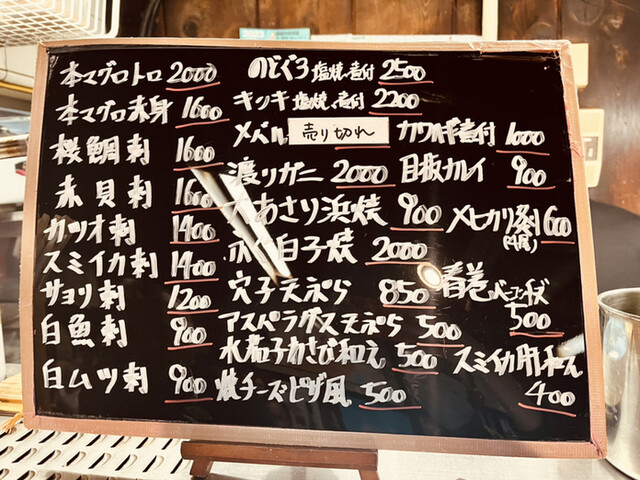 本マグロトロ 2000
本マグロ赤身 1600
桜鯛刺 1600
赤貝刺 1600
カツオ刺 1400
スミイカ刺 1400
サヨリ刺 1200
白魚刺 900
白ムツ刺 900
のどぐろ塩焼、煮付 2500
キンキ塩焼、煮付 2200
メバル 売り切れ
渡りガニ 2000
大あさり浜焼 900
白子焼 2000
穴子天ぷら 850
アスパラガス天ぷら 500
水茄子わさび和え 500
焼チーズピザ風 500
カワハギ煮付 1000
目板カレイ 900
メヒカリ 600
春巻 ベーコンチーズ
500
スミイカ肝
400